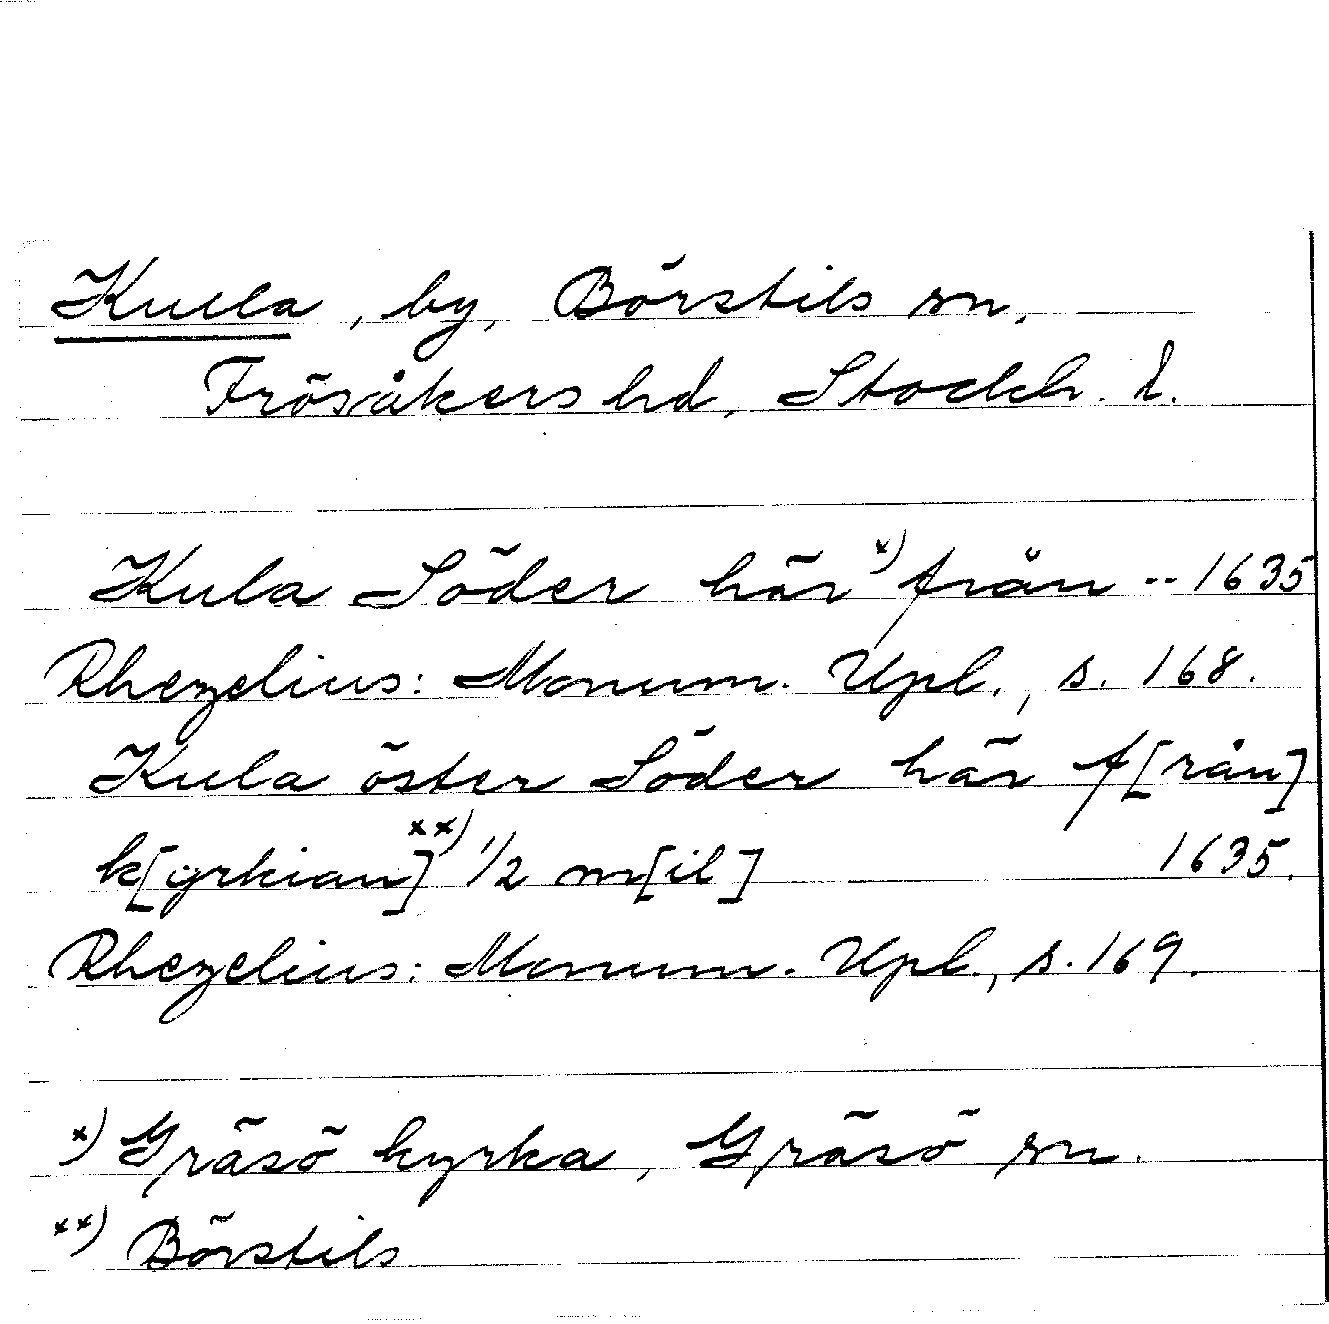 Kulla, by, Börstils sn,
Frösåkers hd, Stockh. l.
Kula Söder här x) från -- 1635
Rhezelius: Monum. Upl., s. 168.
Kula öster Söder här f[rån]
k[yrkian] xx) 1/2 m[il] 1635.
Rhezelius: Monum. Upl., s. 169.
x) Gräsö kyrka, Gräsö sn.
xx) Börstils